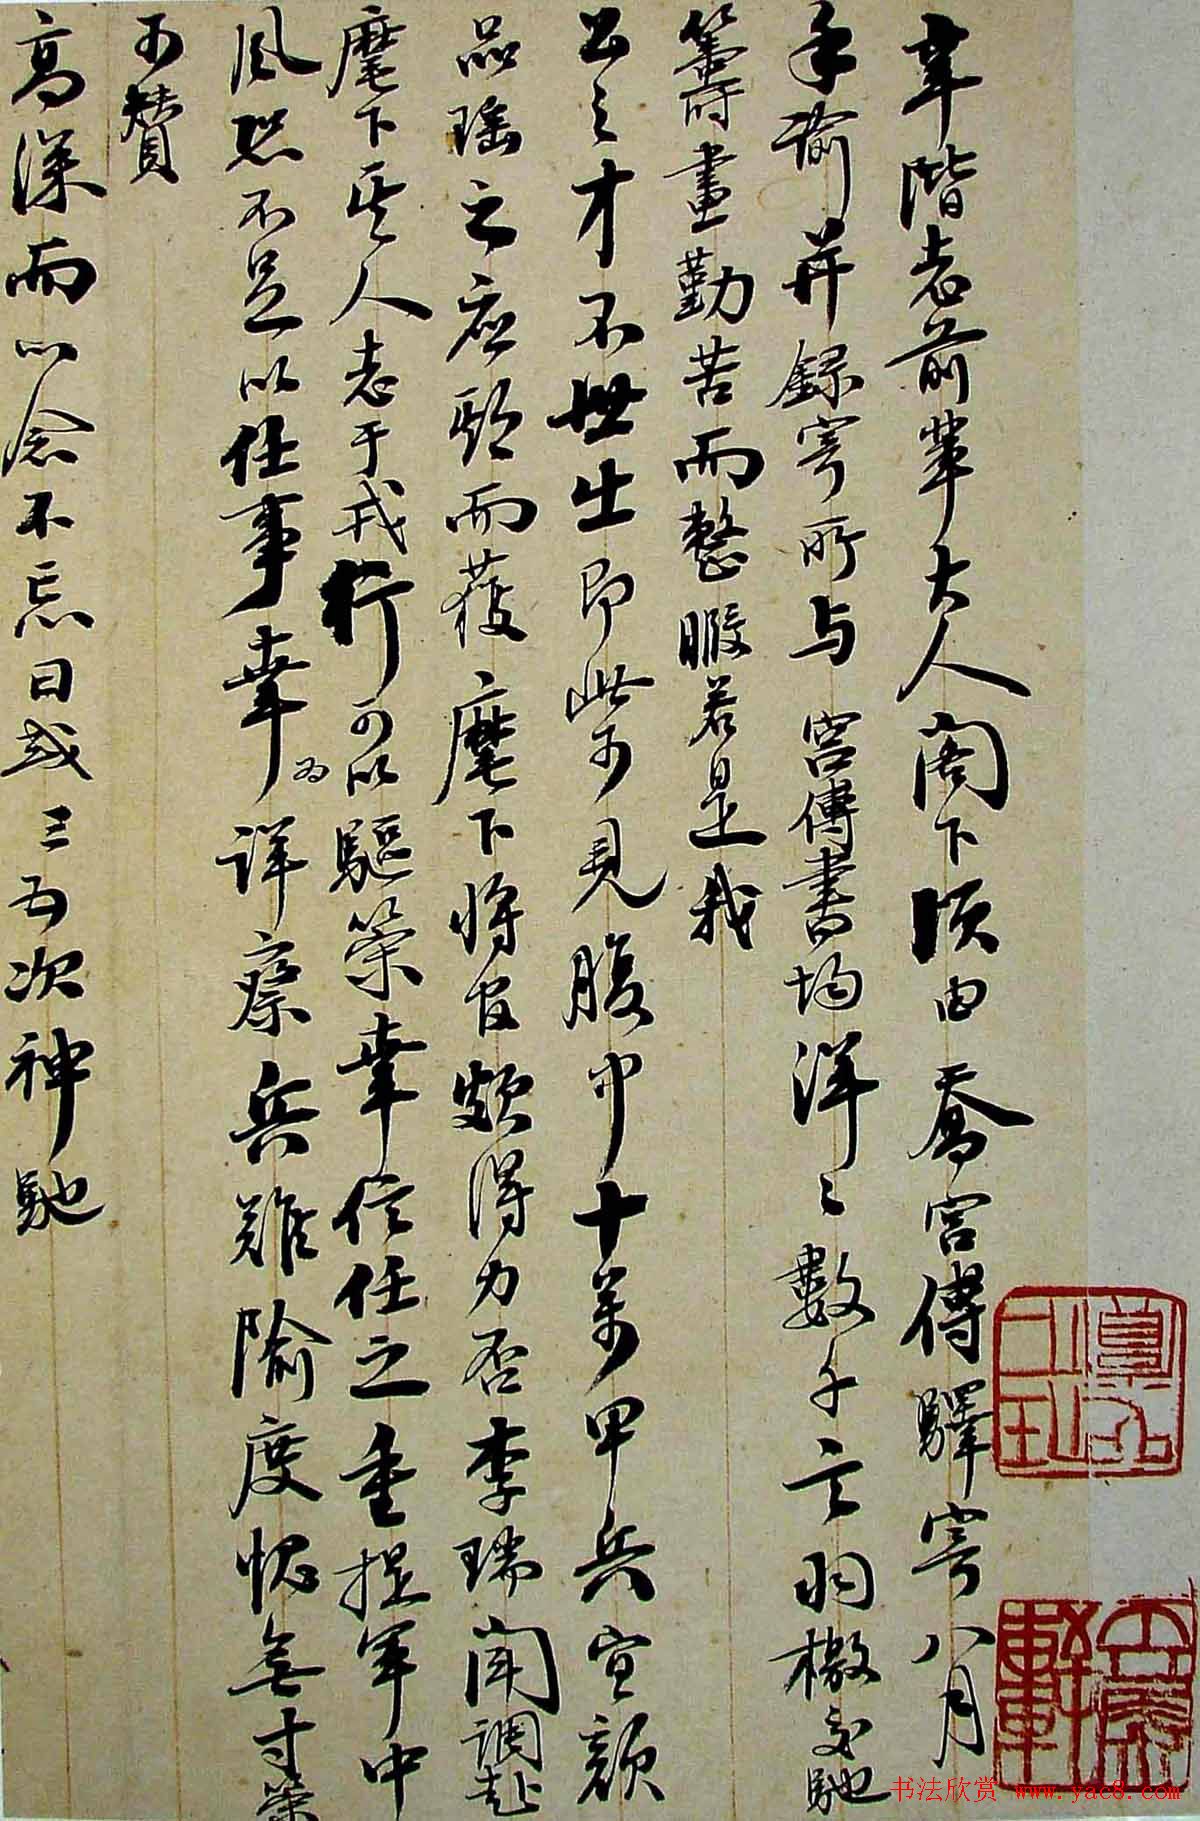 韋階老前輩大人閣下頃由喬宮傅驛寄八月
手諭并錄寄所与宮傅書均洋々數千言羽檄交馳
籌畫勤苦而整暇若是我
公之才不世出即此可見腹中十萬甲兵宣額
品瑶之疮頭而獲麾下將官頗得力否李瑞聞調赴
麾下其人志于戎行可以驅策幸信任之重握軍中
風恐不足以任事幸為詳察兵難隃度愧無寸策
可贊
高深而心念不忘日或三五次神馳
书法欣赏 www.yac8.com